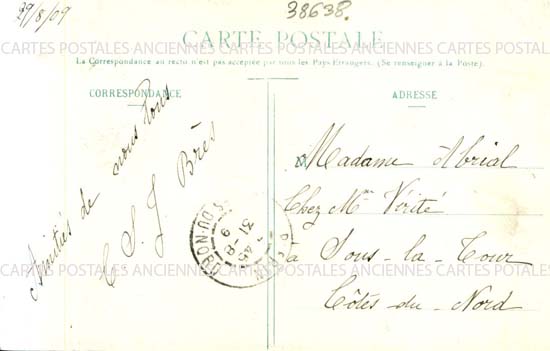 29/8/09
38638.
CARTE POSTALE
CARTES POSTALES ANCIENNES CARTES POSTALES ANCIENNES CARTES POSTALES ANCIENNES
La Correspondance au recto n'est pas acceptée par tous les Pays Étrangers. (Se renseigner à la Poste).
CORRESPONDANCE
ADRESSE
Amitiés de nous tous
C S. J. Brès
Madame Abrial
Chez Mme Vérité
à Sous-la-Tour
Côtes-du-Nord
7 45
31 -8
9
CÔTES-DU-NORD